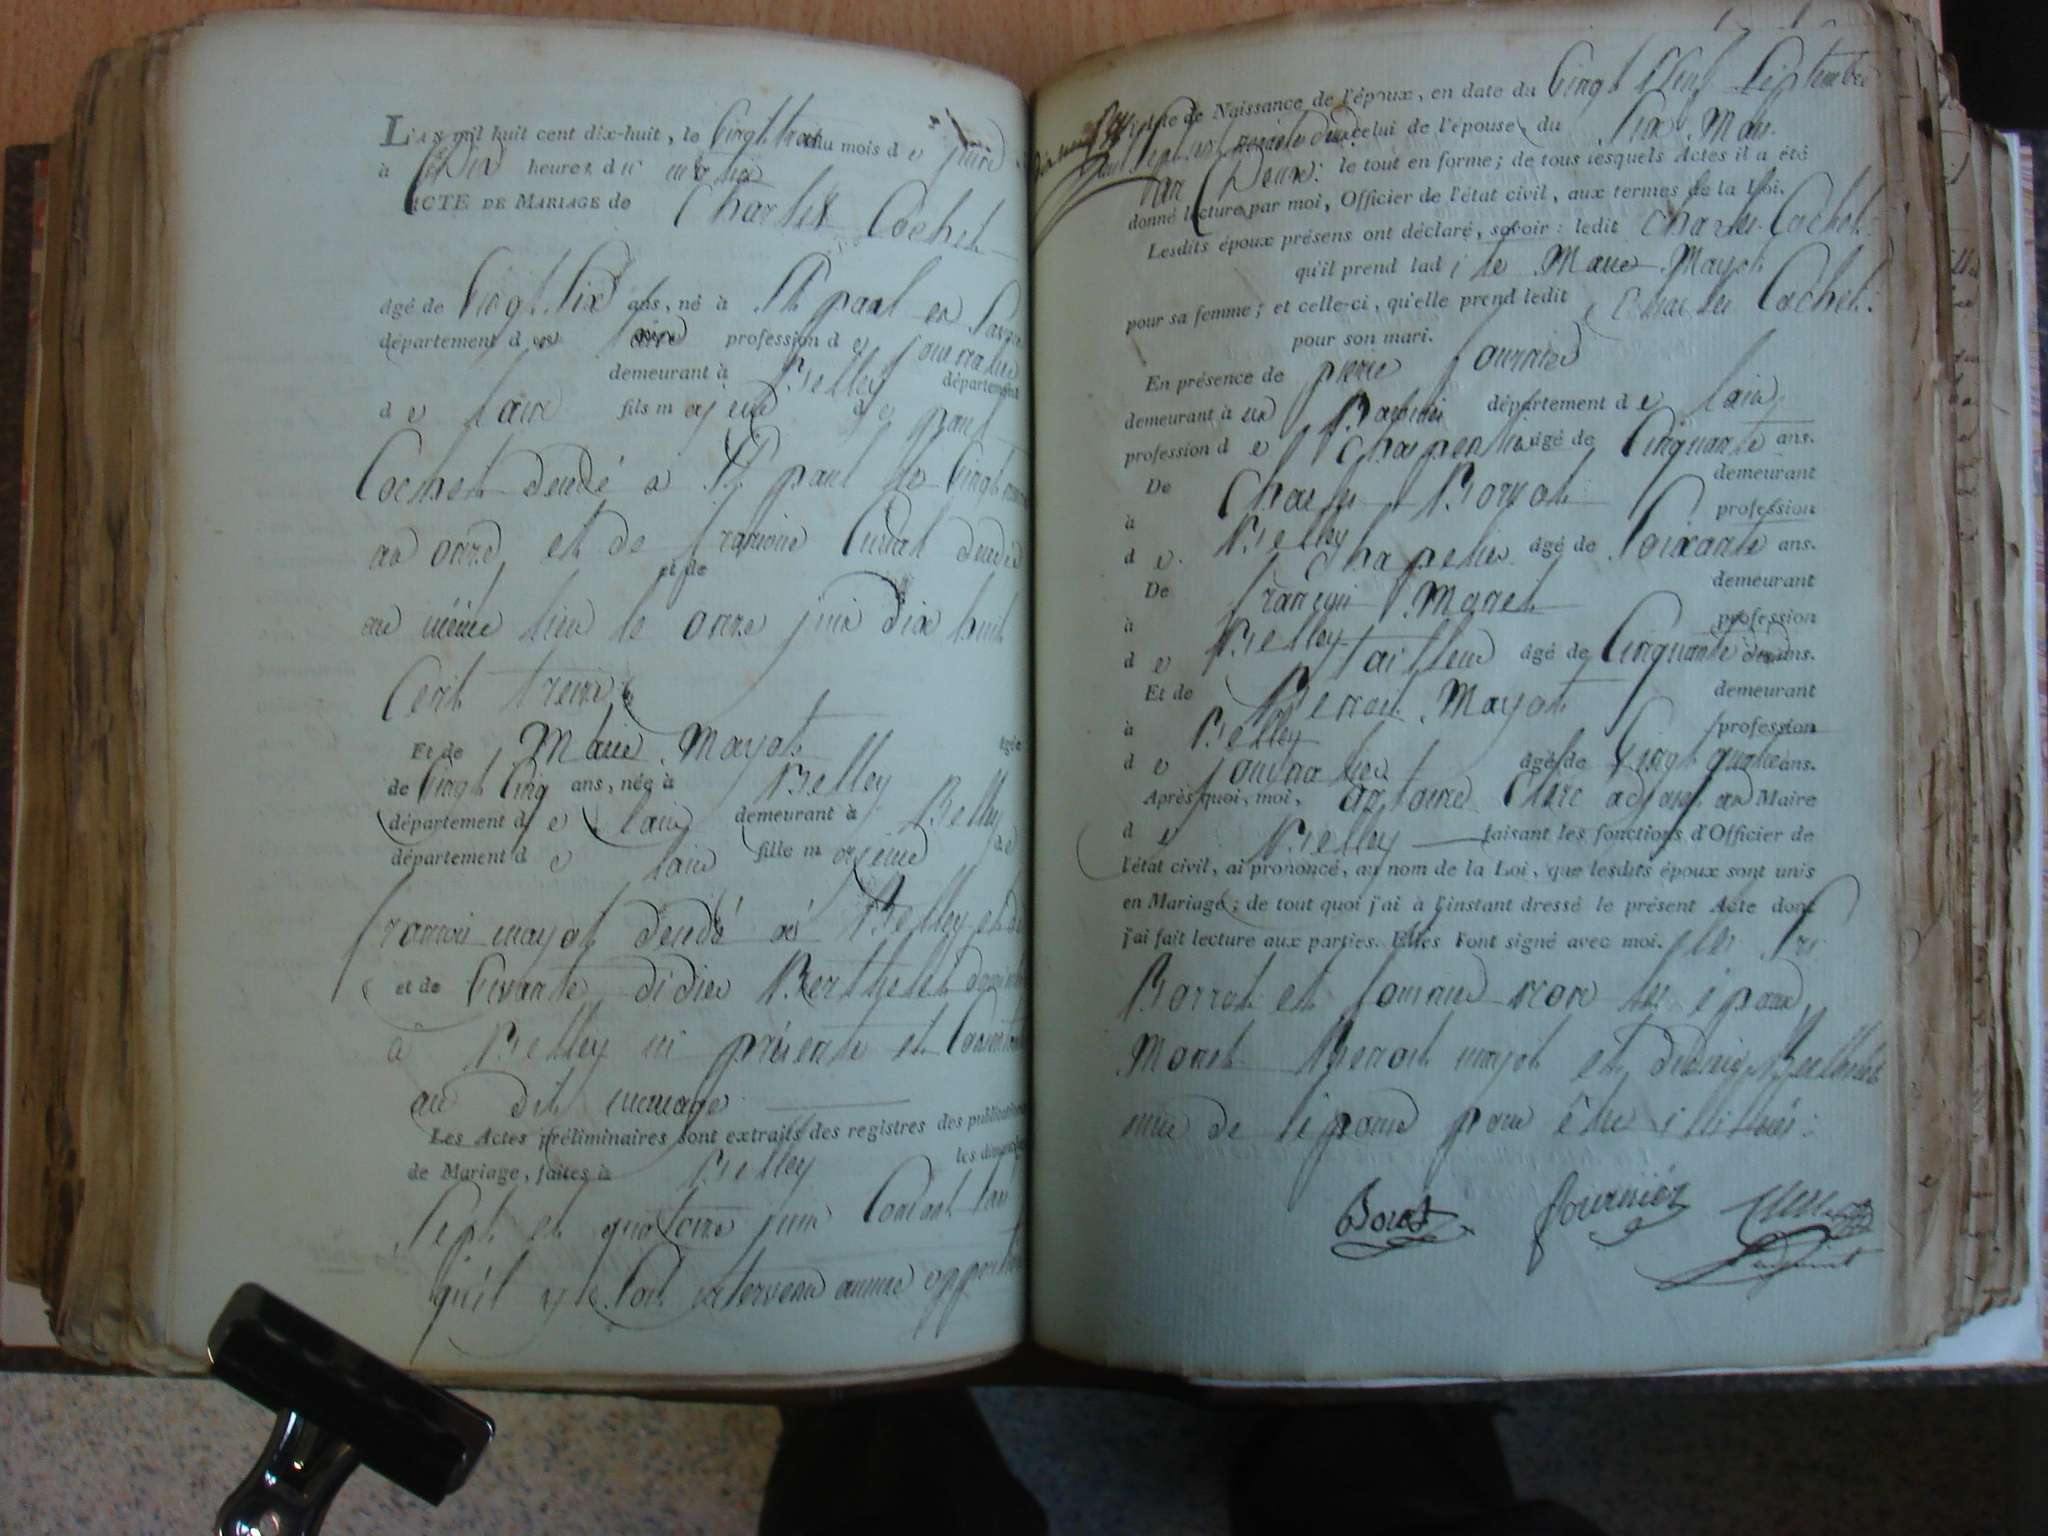 L'AN mil huit cent dix-huit, le Vingt trois du mois d e juin
à dix heures du matin
ACTE DE MARIAGE de Charles Cochet
âgé de Vingt Six ans, né à St paul en
département d e lain profession d e journalier
demeurant à Belley département
d e lain fils majeur de paul
Cochet décédé a St paul le Vingt
an onze et de Cunat décédée
et de
au même lieu le onze juin dix huit
Cent treize
Et de Marie Mayot âgée
de Vingt Cinq ans, née à Belley
département d e lain demeurant à Belley
département d e lain fille majeure de
francois mayot décédé à Belley et de
et de Vivante didier Berthelet demeurant
à Belley ici présente et Consentante
au dit mariage
Les Actes préliminaires sont extraits des registres des publications
de Mariage, faites à Belley les dimanches
Sept et quatorze juin Courant sans
qu'il y soit intervenu aucune opposition
l'Acte de Naissance de l'époux, en date du Vingt Neuf Septembre
mil sept cent celui de l'épouse du Six Mai
an Douze: le tout en forme; de tous lesquels Actes il a été
donné lecture par moi, Officier de l'état civil, aux termes de la Loi.
Lesdits époux présens ont déclaré, savoir: ledit Charles Cochet
qu'il prend lad ite Marie Mayot
pour sa femme; et celle-ci, qu'elle prend ledit Charles Cochet
pour son mari.
En présence de pierre fournier
demeurant à département d e lain
profession d e Charpentier âgé de Cinquante ans.
De Charles Borrot demeurant
à Belley profession
d e Chapelier âgé de Soixante ans.
De françois Monet demeurant
à Belley profession
d e tailleur âgé de Cinquante deux ans.
Et de Benoit Mayot demeurant
à Belley profession
d e journalier âgé de Vingt quatre ans.
Après quoi, moi, antoine Clerc adjoint au Maire
d e Belley faisant les fonctions d'Officier de
l'état civil, ai prononcé, au nom de la Loi, que lesdits époux sont unis
en Mariage; de tout quoi j'ai à l'instant dressé le présent Acte dont
j'ai fait lecture aux parties. Elles l'ont signé avec moi.
Borrot et fournier non les époux
Monet Benoit mayot et didier Berthelet
mere de l'épouse pour être illitérés:
Borrot fournier Clerc
adjoint